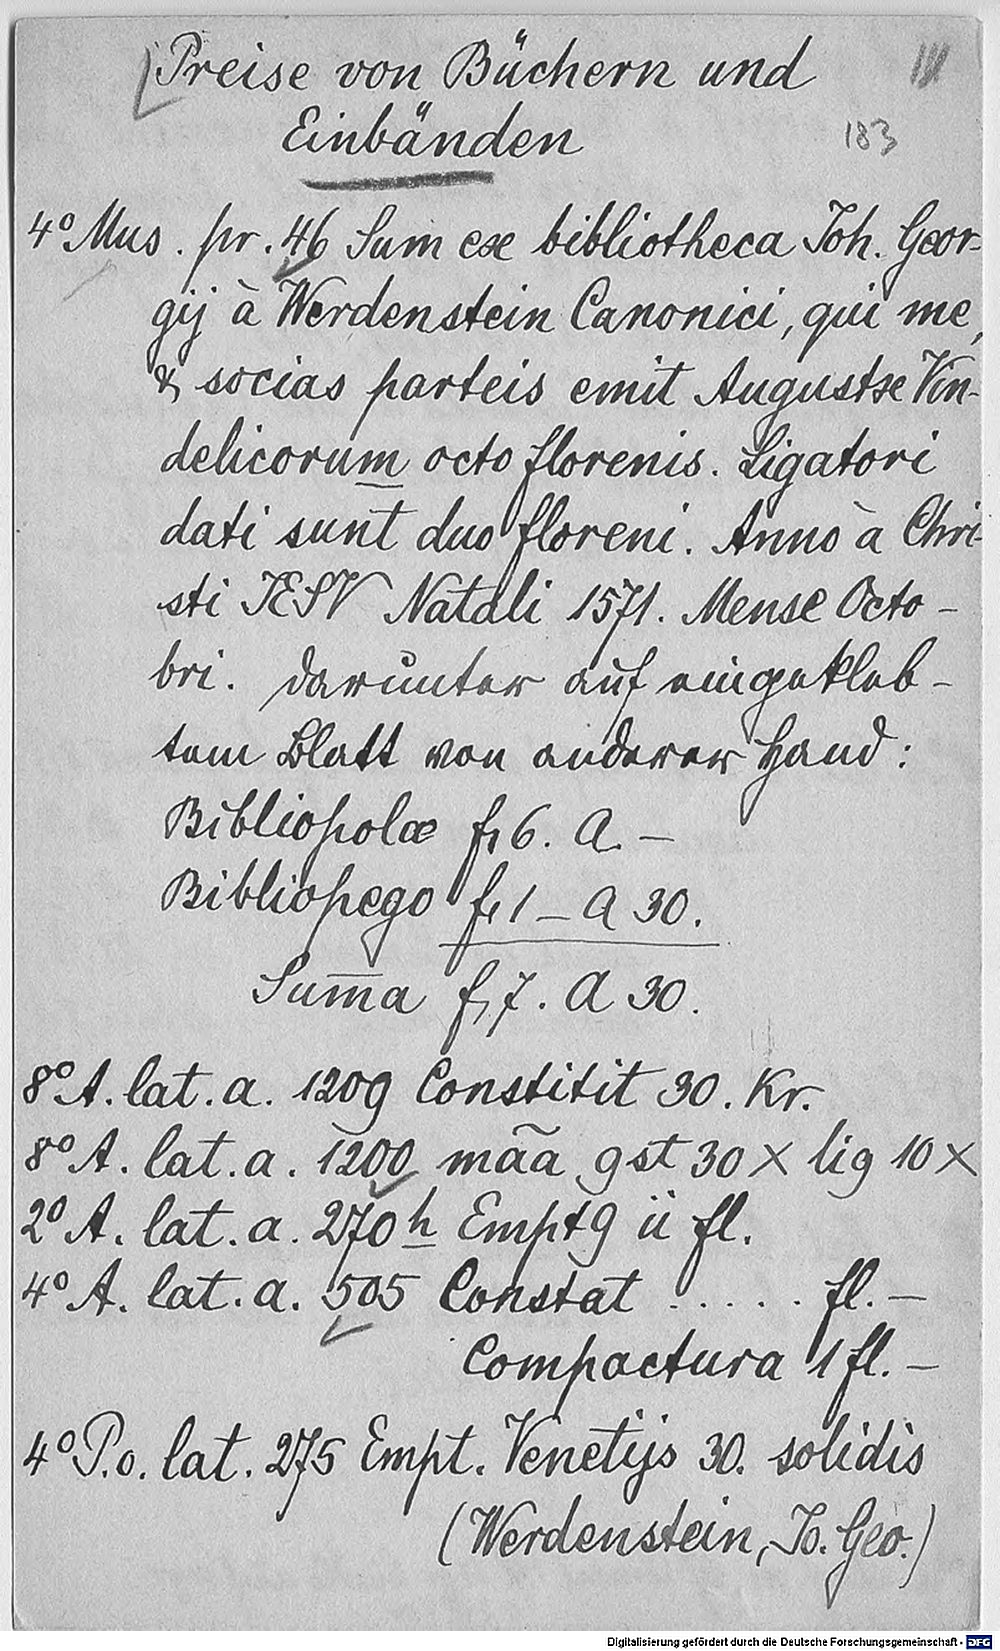 Preise von Büchern und
Einbänden
183
4° Mus. pr. 46 Sum ex bibliotheca Joh. Geor-
gij à Werdenstein Canonici, qui me,
& socias parteis emit Augustæ Vin-
delicorum octo florenis. Ligatori
dati sunt duo floreni. Anno à Chri-
sti IESV Natali 1571. Mense Octo-
bri. darunter auf eingekleb-
tem Blatt von anderer Hand:
Bibliopolæ f. 6. A. —
Bibliopego f. 1 — A 30.
Sum̄a f. 7. A 30.
8° A. lat. a. 1209 Constitit 30. Kr.
8° A. lat. a. 1200 mãa gst 30 x lig 10 x
2° A. lat. a. 270h Empt9 ii fl.
4° A. lat. a. 505 Constat ..... fl. —
Compactura 1 fl. —
4° P.o. lat. 275 Empt. Venetijs 30. solidis
(Werdenstein, Jo. Geo.)
Digitalisierung gefördert durch die Deutsche Forschungsgemeinschaft - DFG